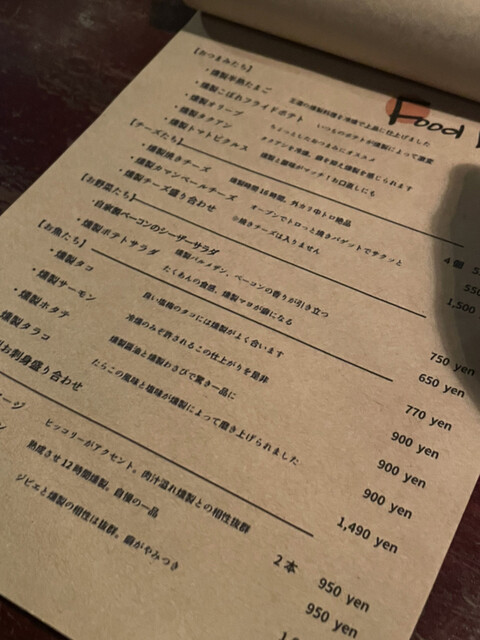 Food
【おつまみたち】
・燻製半熟たまご 王道の燻製料理を冷燻で上品に仕上げました
・燻製こぼれフライドポテト いつものポテトが燻製によって激変
・燻製オリーブ ちょっとしたおつまみにオススメ
・燻製タクアン タクアンを冷燻、鍋を超え燻製を感じられます
・燻製トマトピクルス 燻製と酸味がマッチ!お口直しにも
【チーズたち】
・燻製焼きチーズ 燻製時間16時間、外カリ中トロ絶品 4個
・燻製カマンベールチーズ オーブンでトロっと焼きバゲットでサクッと 550
・燻製チーズ盛り合わせ ※焼きチーズは入りません 1,500
【お野菜たち】
・自家製ベーコンのシーザーサラダ 燻製パルメザン、ベーコンの香りが引き立つ 750 yen
・燻製ポテトサラダ たくあんの食感、燻製マヨが癖になる 650 yen
【お魚たち】
・燻製タコ 良い塩梅のタコには燻製がよく合います 770 yen
・燻製サーモン 冷燻のみぞ許されるこの仕上がりを是非 900 yen
・燻製ホタテ 燻製醤油と燻製わさびで驚き一品に 900 yen
燻製タラコ たらこの風味と塩味が燻製によって磨き上げられました 900 yen
お刺身盛り合わせ 1,490 yen
ージ ピッコリーがアクセント。肉汁溢れ燻製との相性抜群 2本 950 yen
ン 熟成させ12時間燻製。自慢の一品 950 yen
ジビエと燻製の相性は抜群。鍋がやみつき